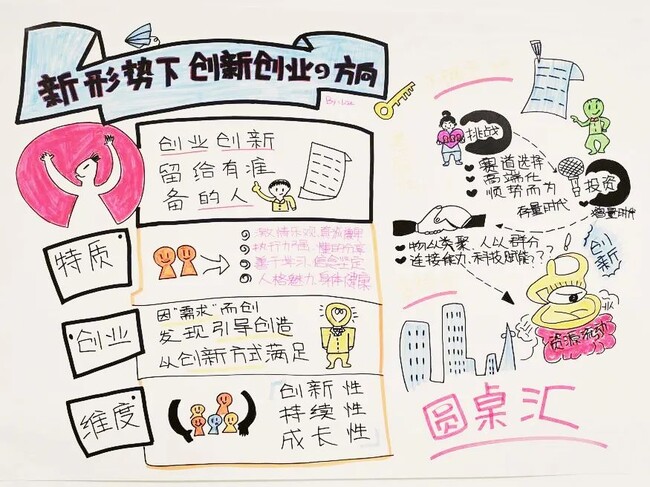 新形势下创新创业の方向
By: Lisa
创业创新
留给有准
备的人
特质
激情乐观 真诚
执行力强、懂得分享
善于学习、信念坚定
人格魅力 身体健康
创业
因"需求"而创
发现引导创造
从创新方式满足
维度
创新性
持续性
成长性
挑战
赛道选择
高端化
顺势而为
投资
存量时代
增量时代
物以类聚、人以群分
连接能力、科技赋能??
创新
资源流动
圆桌汇